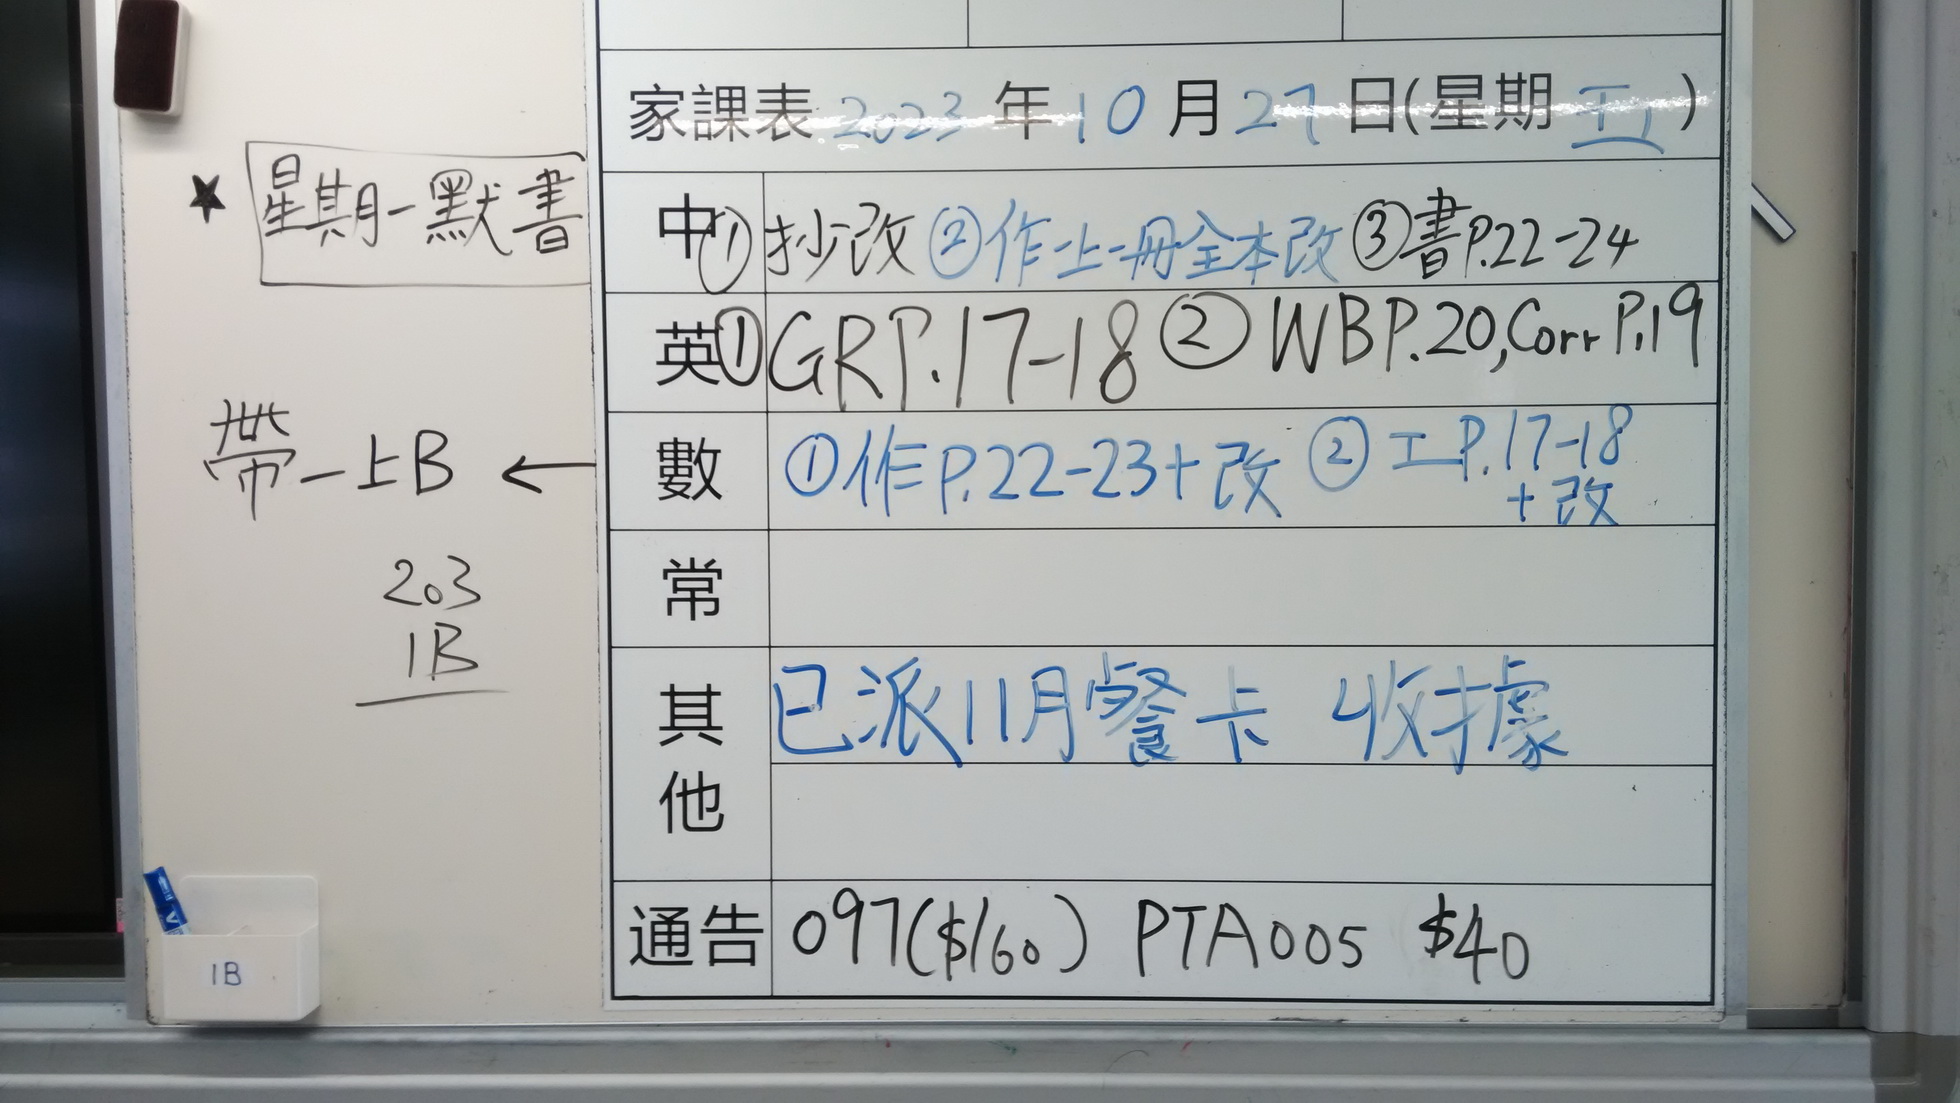 家課表 2023 年 10 月 27 日(星期 五)
★ 星期一默書
中 ①抄改 ②作上一冊全本改 ③書P.22-24
英 ①GRP.17-18 ②WBP.20,Corr P.19
帶一上B ←
數 ①作P.22-23+改 ②工P.17-18
+改
203
1B
常
其他 已派11月餐卡 收據
通告 097($160) PTA005 $40
1B